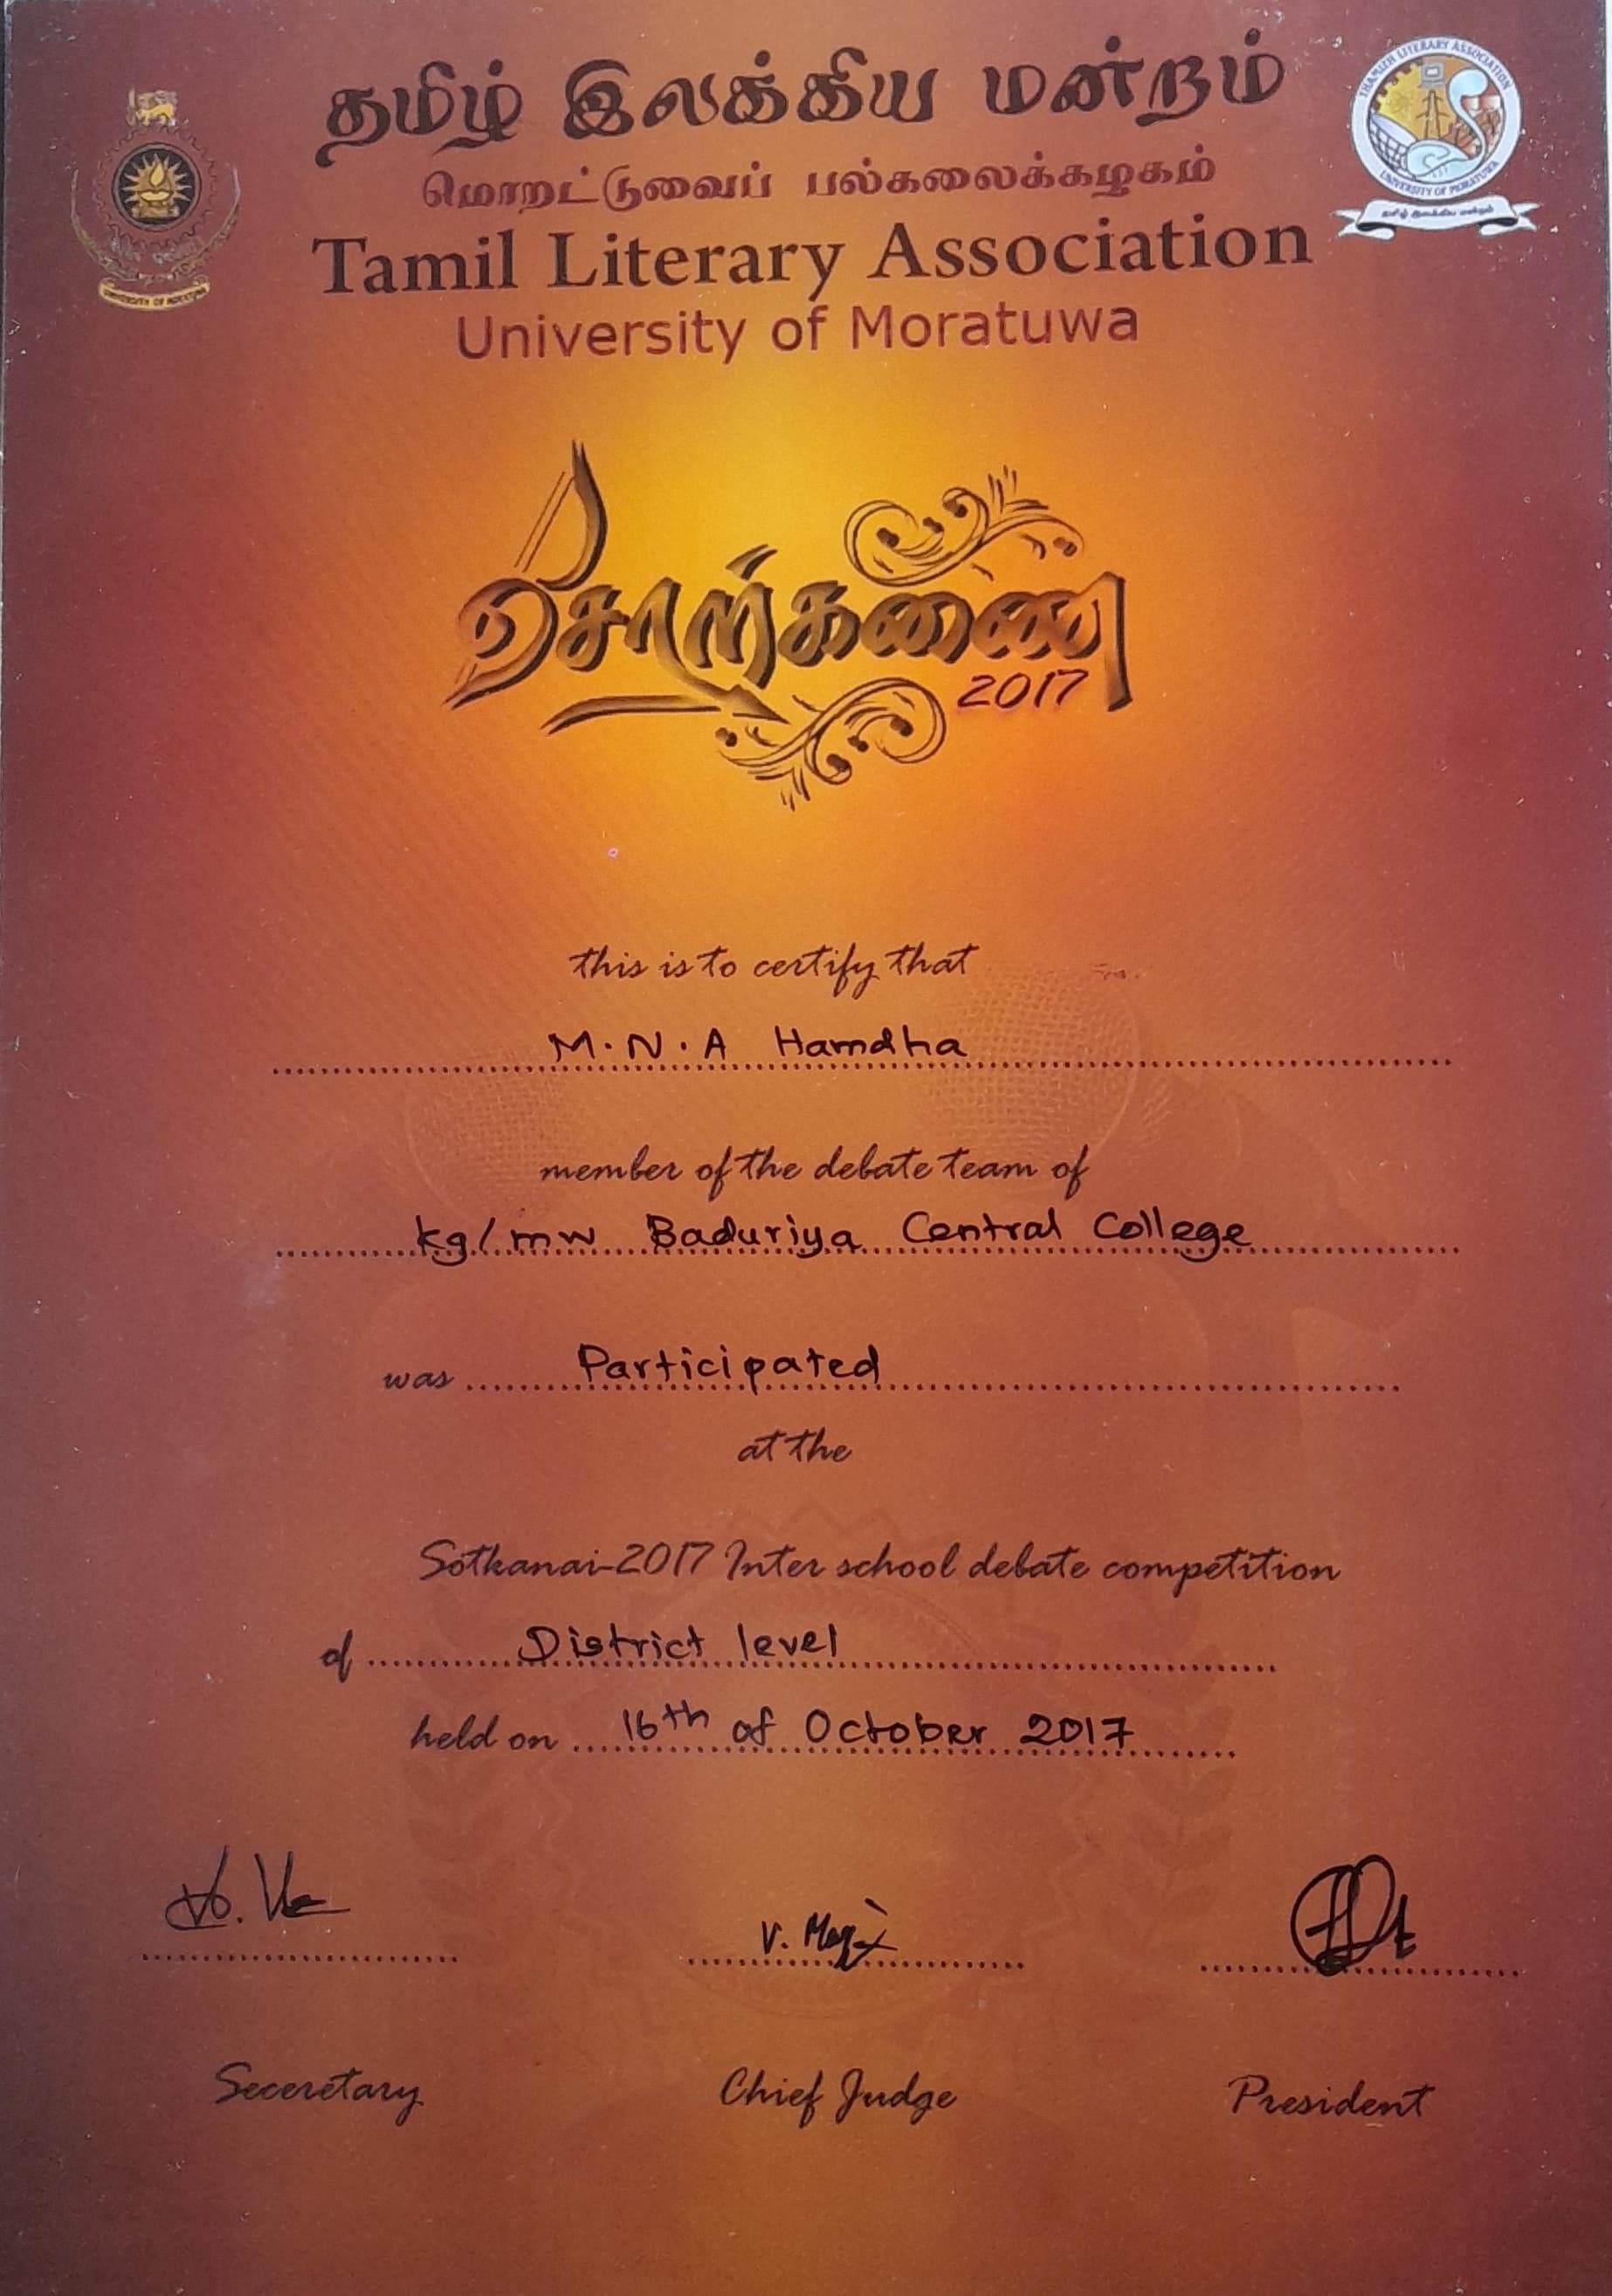 தமிழ் இலக்கிய மன்றம்
மொறட்டுவைப் பல்கலைக்கழகம்
Tamil Literary Association
University of Moratuwa
UNIVERSITY OF MORATUWA
THAMIZH LITERARY ASSOCIATION
UNIVERSITY OF MORATUWA
தமிழ் இலக்கிய மன்றம்
சொற்கணை
2017
this is to certify that
M.N.A Hamdha
member of the debate team of
kg/mw Baduriya Central College
was Participated
at the
Sotkanai-2017 Inter school debate competition
of District level
held on 16th of October 2017
Seceretary Chief Judge President